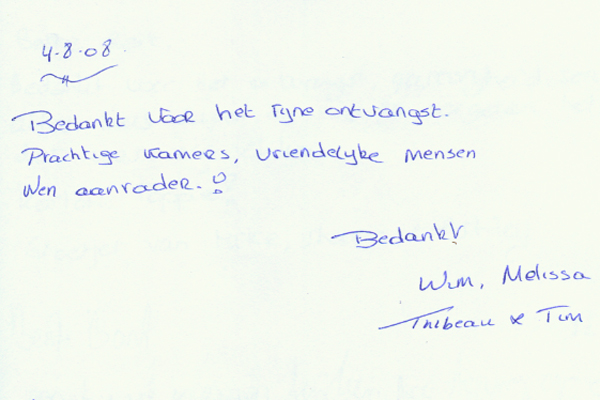 4-8-08.
Bedankt voor het fijne ontvangst.
Prachtige kamers, vriendelijke mensen
Een aanrader.!
Bedankt!
Wim, Melissa
Thibeau & Tim